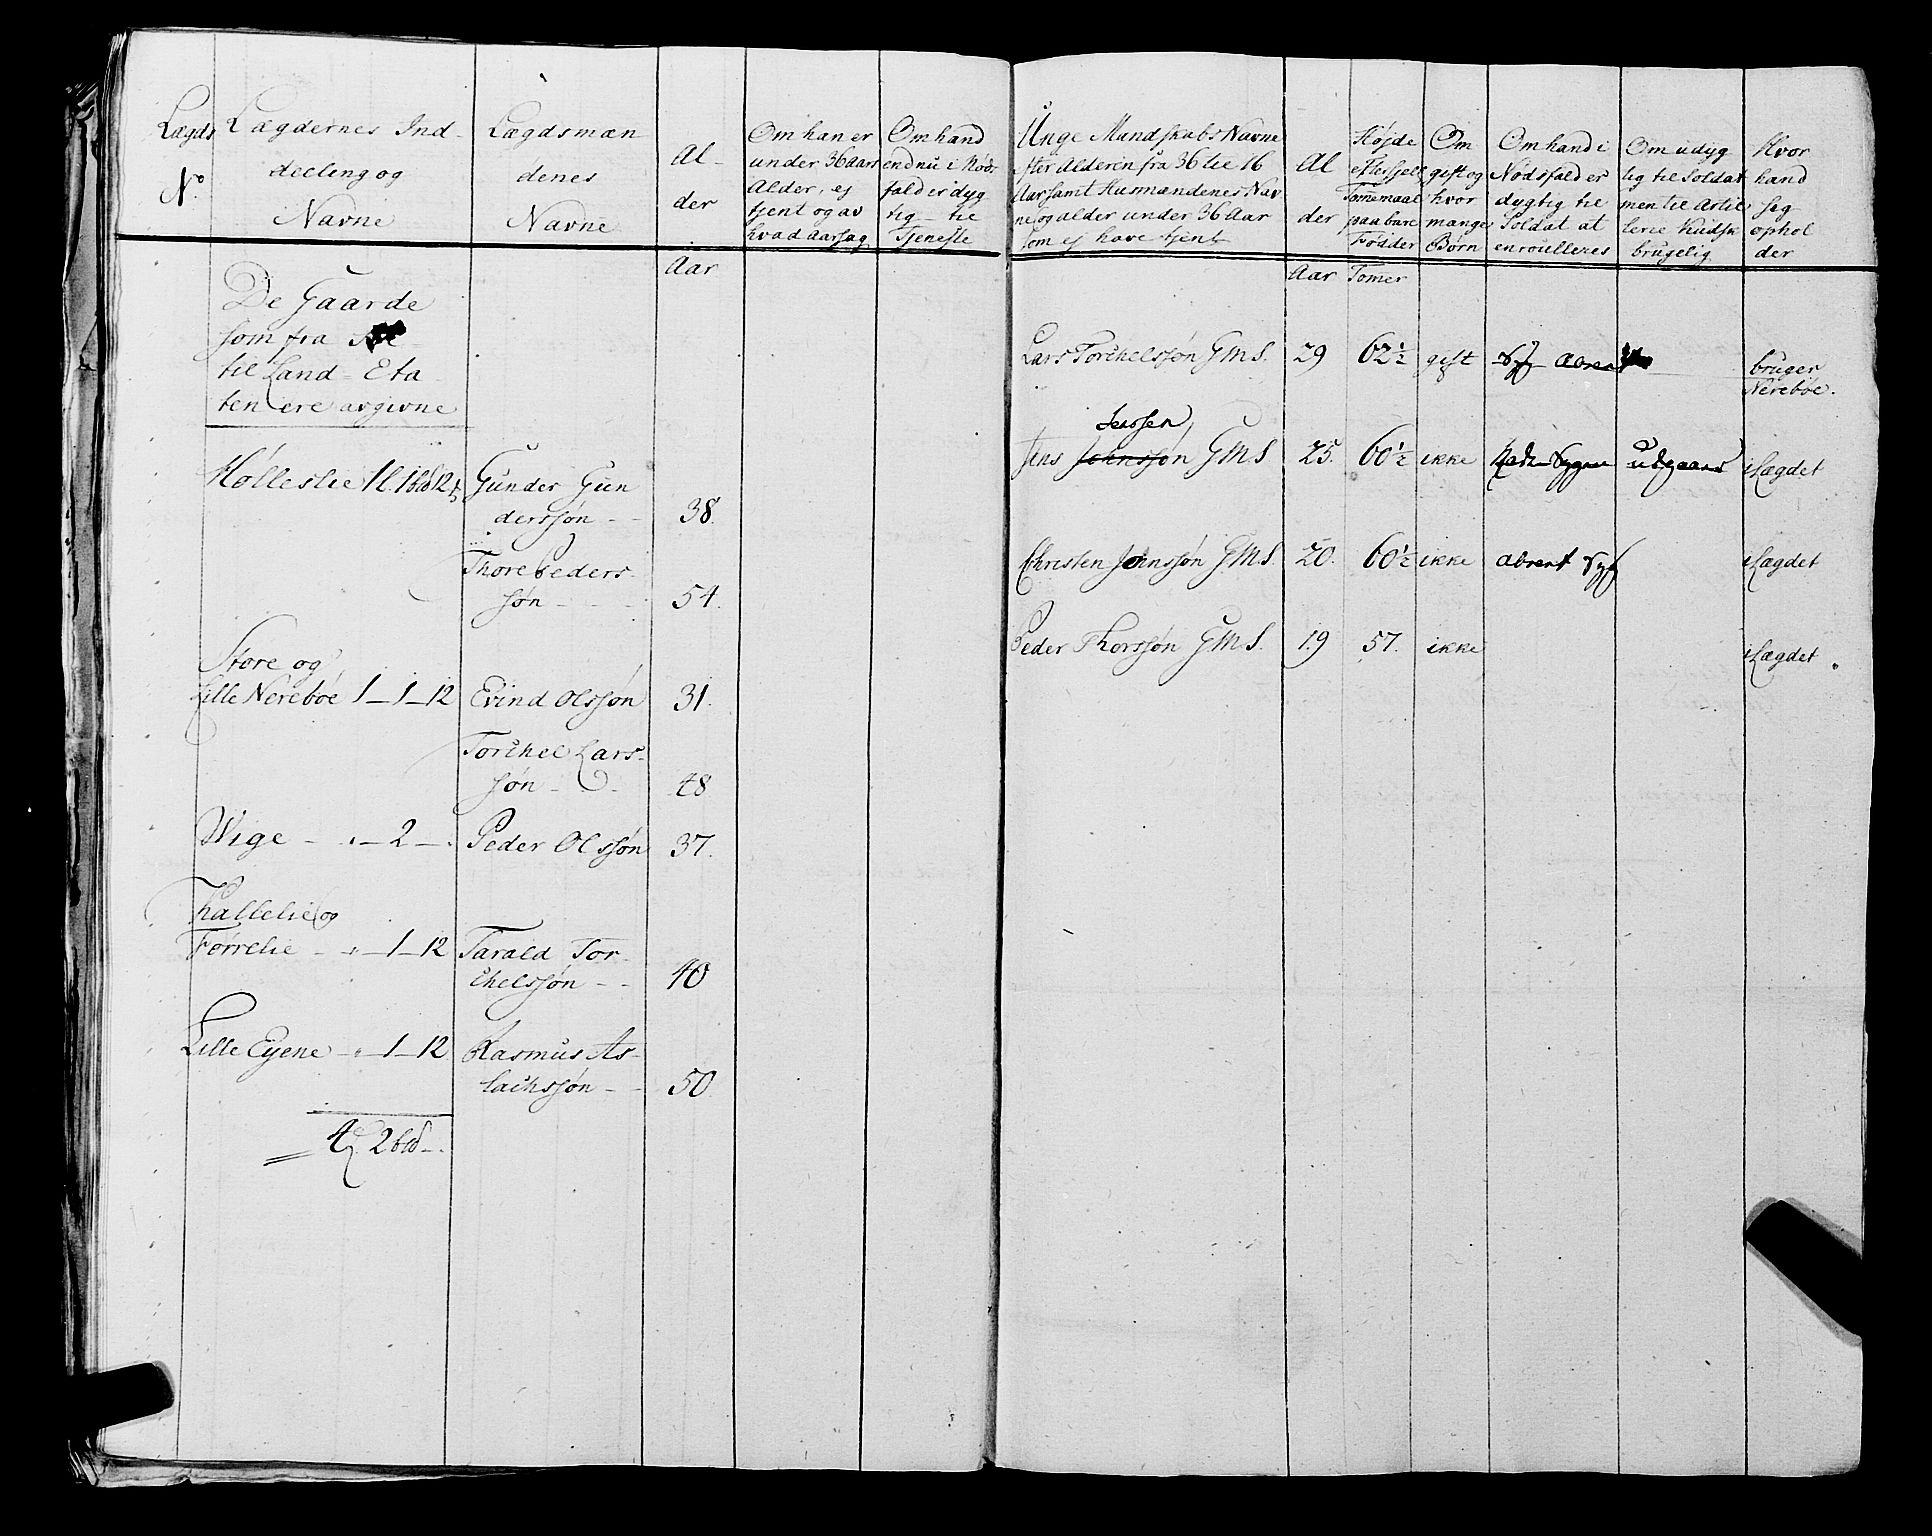 Lægds
No
Lægdernes Ind-
deeling og
Navne
Lægdsmæn
denes
Navne
Al-
der
Om han er
under 36 Aars
Alder, ej
tjent og av
hvad aarsag
Om hand
endnu i Nøds
fald er dyg
tig til
Tjeneste
Aar
De Gaarde
som fra
til Land-Eta
ten ere avgivne
Hølleslie 1 l. 1 bd 12
Gunder Gun
derssøn - - 38.
Thore Peders-
søn - - - 54.
Store og
Lille Nerebøe 1 - 1 - 12 Evind Olssøn 31.
Torchel Lars-
søn - - 48
Wige - " - 2 - " Peder Olssøn 37.
Hallelie og
Førrelie - " - 1 - 12 Tarald Tor-
chelssøn - - 40
Lille Eyene - " - 1 - 12 Rasmus As-
lachssøn - - 50
4 2 bd -
Unge Mandskabs Navne
efter Alderen fra 36 til 16
Aar samt Husmændenes Nav
ne og alder under 36 Aar
som ej have tjent
Al
der
Højde
efter
Tommemaal
paa bare
Fødder
Om
gift og
hvor
mange
Børn
Om hand i
Nødsfald er
dygtig til
Soldat at
enroulleres
Om udyg
tig til Soldat
men til Artil
lerie Kudsk
brugelig
Hvor
hand
sig
ophol
der
Aar Tomer
Lars Torchelssøn G.M.S. 29 62½ gift
bruger
Nerebøe.
Jenssen
Jens Johnssøn G.M.S 25. 60½ ikke udgaaer i Lægdet
Christen Johnssøn G.M.S. 20. 60½ ikke i Lægdet
Peder Thorssøn G.M.S. 19 57. ikke i Lægdet